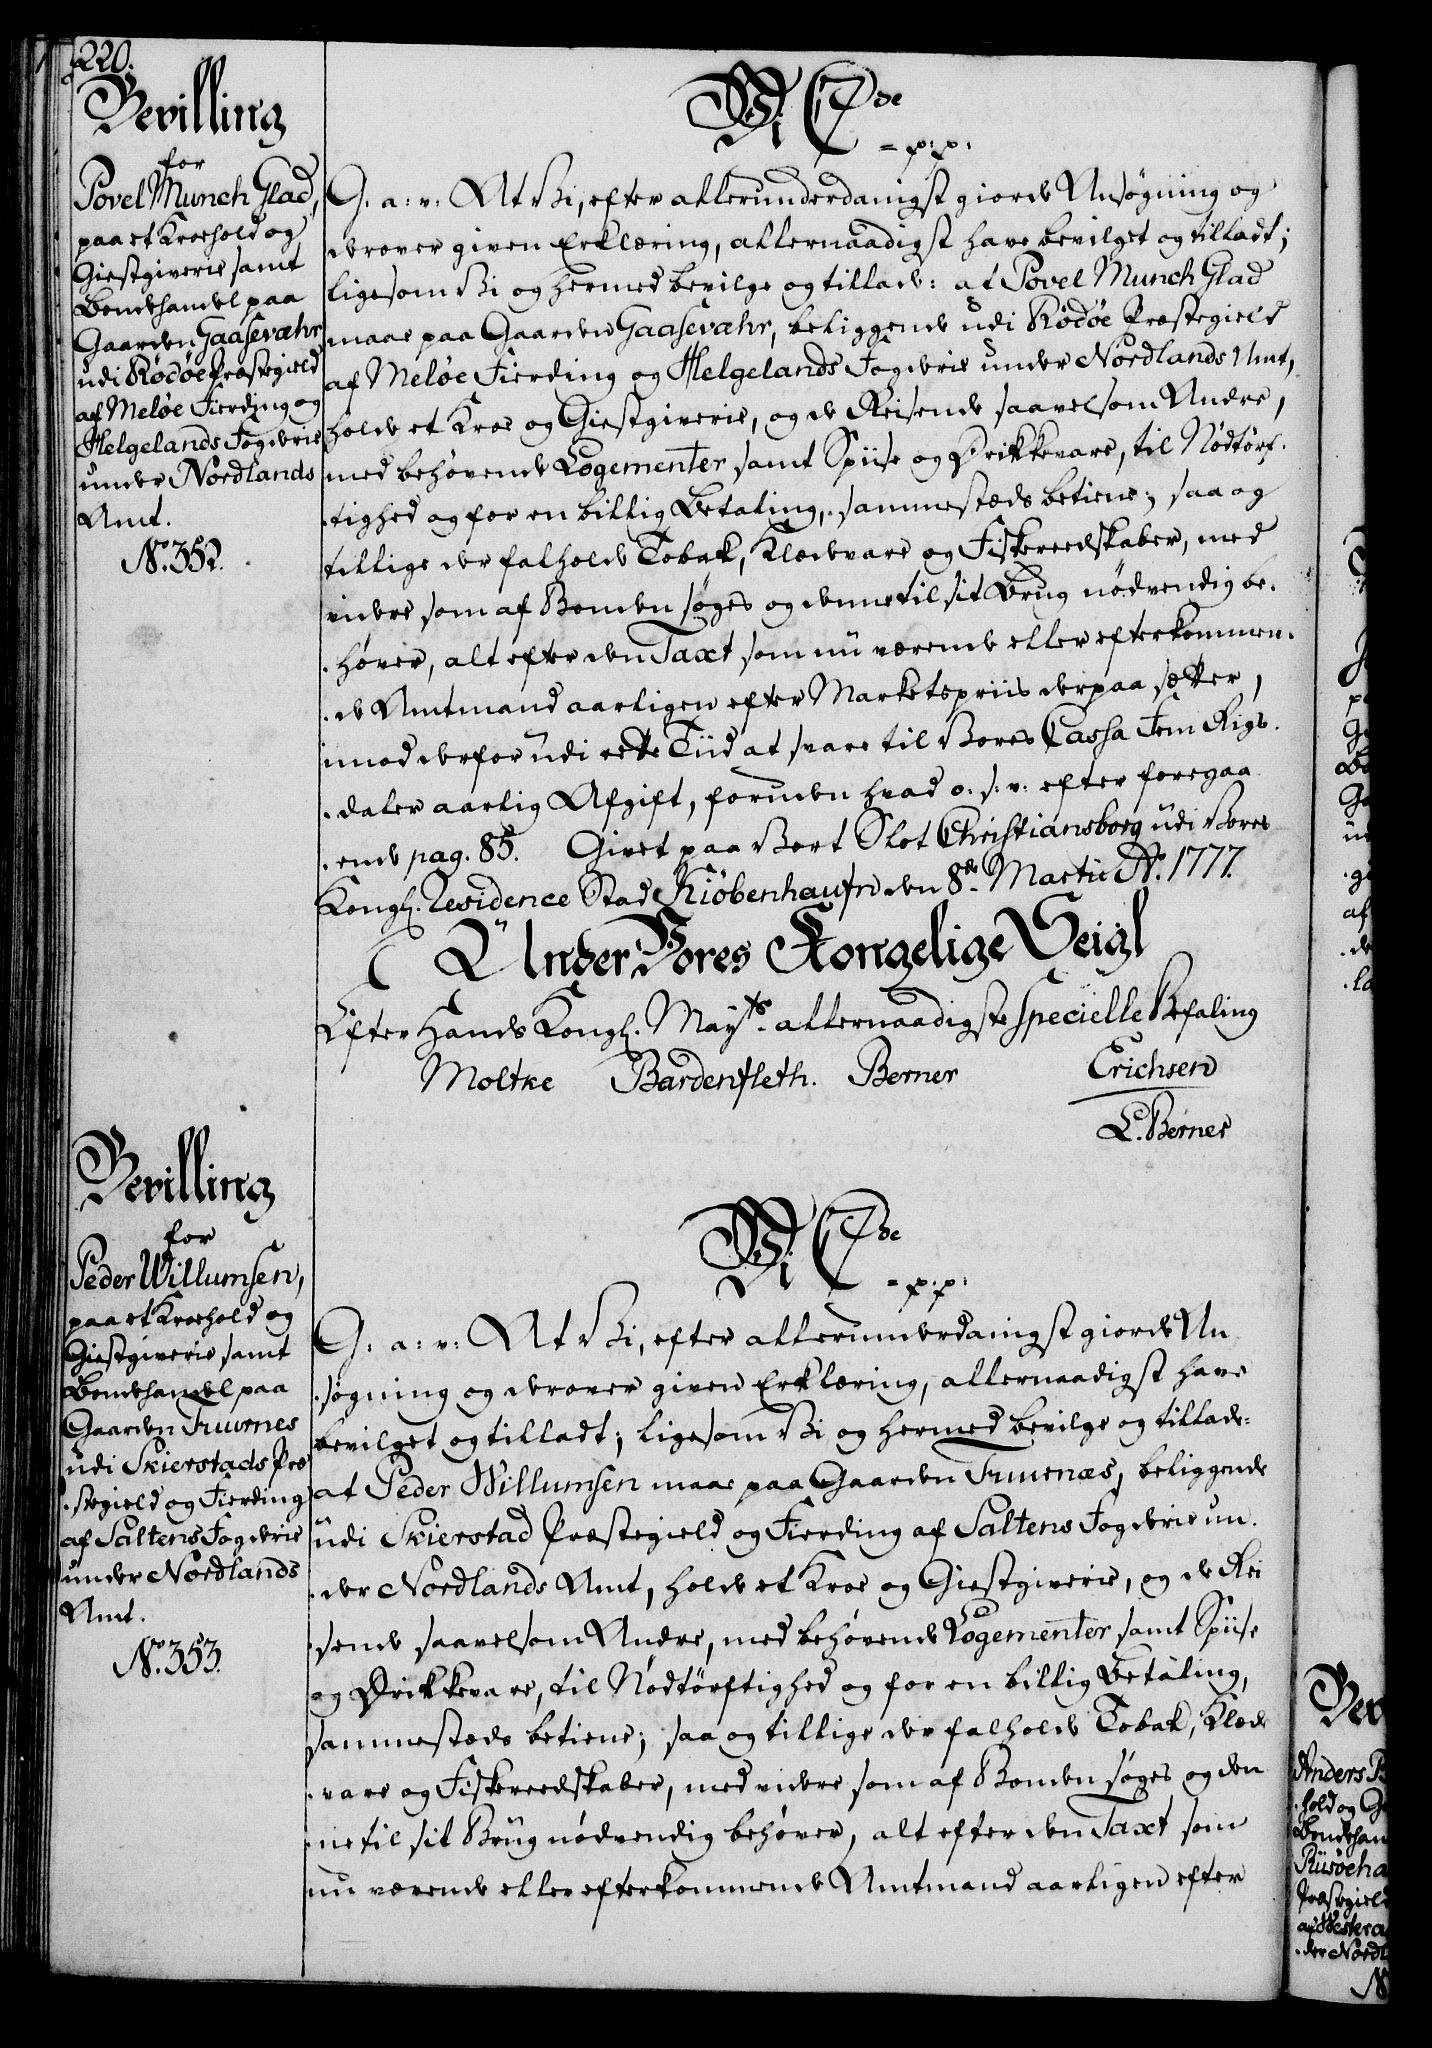 220.
Bevilling
for
Povel Munch Glad,
paa et Kroehold og
Giestgiverie samt
Bondehandel paa
Gaarden Gaasevæhr
udi Rödöe Præstegield
af Meløe Fierding og
Helgelands Fogderie
under Nordlands
Amt.
No. 352.
Vi C 7de
= p: p:
G. a: v: At Vi, efter allerunderdanigst giorde Ansøgning og
derover given Erklæring, allernaadigst have bevilget og tilladt;
ligesom Vi og hermed bevilge og tillade: at Povel Munch Glad
maae paa Gaarden Gaasevæhr, beliggende udi Rödöe Præstegield
af Meløe Fierding og Helgelands Fogderie under Nordlands Amt,
holde et Kroe og Giestgiverie, og de Reisende saavelsom Andre,
med behøvende Logementer samt Spiise og Drikkevare, til Nödtörf-
tighed og for en billig Betaling, sammestæds betiene; saa og
tillige der falholde Tobak, Klædevare og Fiskereedskaber, med
videre som af Bonden søges og denne til sit Brug nödvendig be-
høver, alt efter den Taxt som nu værende eller efterkommen-
de Amtmand aarligen efter Markedspriis derpaa sætter,
imod derfor udi rette Tiid at svare til Vores Cassa Fem Rigs-
daler aarlig Afgift, foruden hvad o. s. v: efter foregaa
ende pag. 85. Givet paa Vort Slot Christiansborg udi Vores
Kongl. Residence Stad Kiöbenhaufn den 8de Martii Ao. 1777.
Under Vores Kongelige Seigl
Efter Hands Kongl. Mayts. allernaadigste specielle Befaling
Moltke Bardenfleth. Berner Erichsen
L. Berner
Bevilling
for
Peder Willumsen,
paa et Kroehold og
Giestgiverie samt
Bondehandel paa
Gaarden Fuurnes
udi Skierstads Præ
stegield og Fierding
af Saltens Fogderie
under Nordlands
Amt.
No. 353.
Vi C 7de
= p: p:
G: a: v: At Vi, efter allerunderdanigst giorde An
søgning og derover given Erklæring, allernaadigst have
bevilget og tilladt; ligesom Vi og hermed bevilge og tillade:
at Peder Willumsen maae paa Gaarden Fuurnæs, beliggende
udi Skierstad Præstegield og Fierding af Saltens Fogderie un-
der Nordlands Amt, holde et Kroe og Giestgiverie, og de Rei
sende saavelsom Andre, med behøvende Logementer samt Spiise
og Drikkevare, til Nödtörftighed og for en billig Betaling,
sammestæds betiene; saa og tillige der falholde Tobak, Klæde
vare og Fiskereedskaber, med videre som af Bonden søges og den
ne til sit Brug nödvendig behøver, alt efter den Taxt som
nu værende eller efterkommende Amtmand aarligen efter